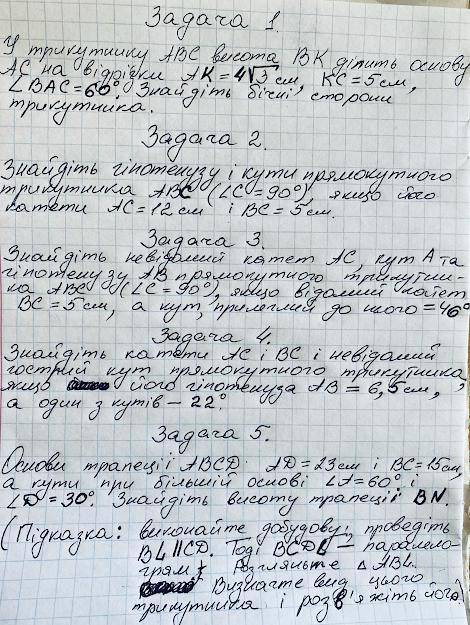 Задача 1.
У трикутнику ABC висота BK ділить основу
AC на відрізки AK = 4√3 см, KC = 5 см,
∠BAC = 60°. Знайдіть бічні сторони
трикутника.
Задача 2.
Знайдіть гіпотенузу і кути прямокутного
трикутника ABC (∠C = 90°), якщо його
катети AC = 12 см і BC = 5 см.
Задача 3.
Знайдіть невідомий катет AC, кут A та
гіпотенузу AB прямокутного трикутни-
ка ABC (∠C = 90°), якщо відомий катет
BC = 5 см, а кут, прилеглий до нього = 46°
Задача 4.
Знайдіть катети AC і BC і невідомий
гострий кут прямокутного трикутника,
якщо його гіпотенуза AB = 6,5 см,
а один з кутів – 22°.
Задача 5.
Основи трапеції ABCD: AD = 23 см і BC = 15 см,
а кути при більшій основі ∠A = 60° і
∠D = 30°. Знайдіть висоту трапеції BN.
(Підказка: виконайте добудову: проведіть
BL || CD. Тоді BCDL – парале­ло-
грам. Розгляньте △ ABL.
Визначте вид цього
трикутника і розв'яжіть його)